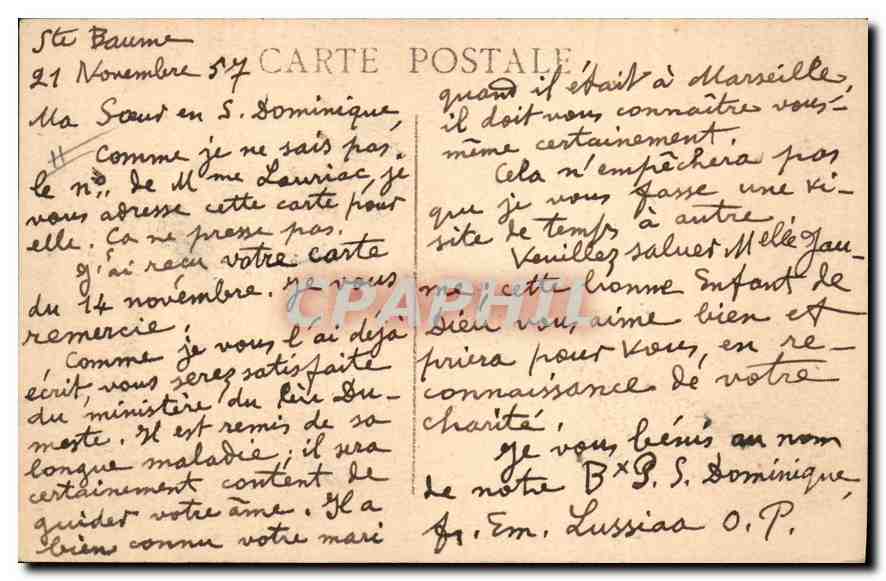 Ste Baume
21 Novembre 57
CARTE POSTALE
Ma Sœur en S. Dominique,
Comme je ne sais pas
le no, de Mme Lauriac, je
vous adresse cette carte pour
elle. Ca ne presse pas.
J'ai reçu votre carte
du 14 novembre. Je vous
remercie.
Comme je vous l'ai déjà
écrit, vous serez satisfaite
du ministère du Père Du-
meste. Il est remis de sa
longue maladie; il sera
certainement content de
guider votre âme. Il a
bien connu votre mari
quand il était à Marseille,
il doit vous connaître vous-
même certainement.
Cela n'empêchera pas
que je vous fasse une vi-
site de temps à autre.
Veuillez saluer Melle Jau-
me; cette bonne Enfant de
Dieu vous aime bien et
priera pour vous, en re-
connaissance de votre
charité.
Je vous bénis au nom
de notre Bx P. S. Dominique,
fr. Em. Lussiaa O. P.
CPAPHIL